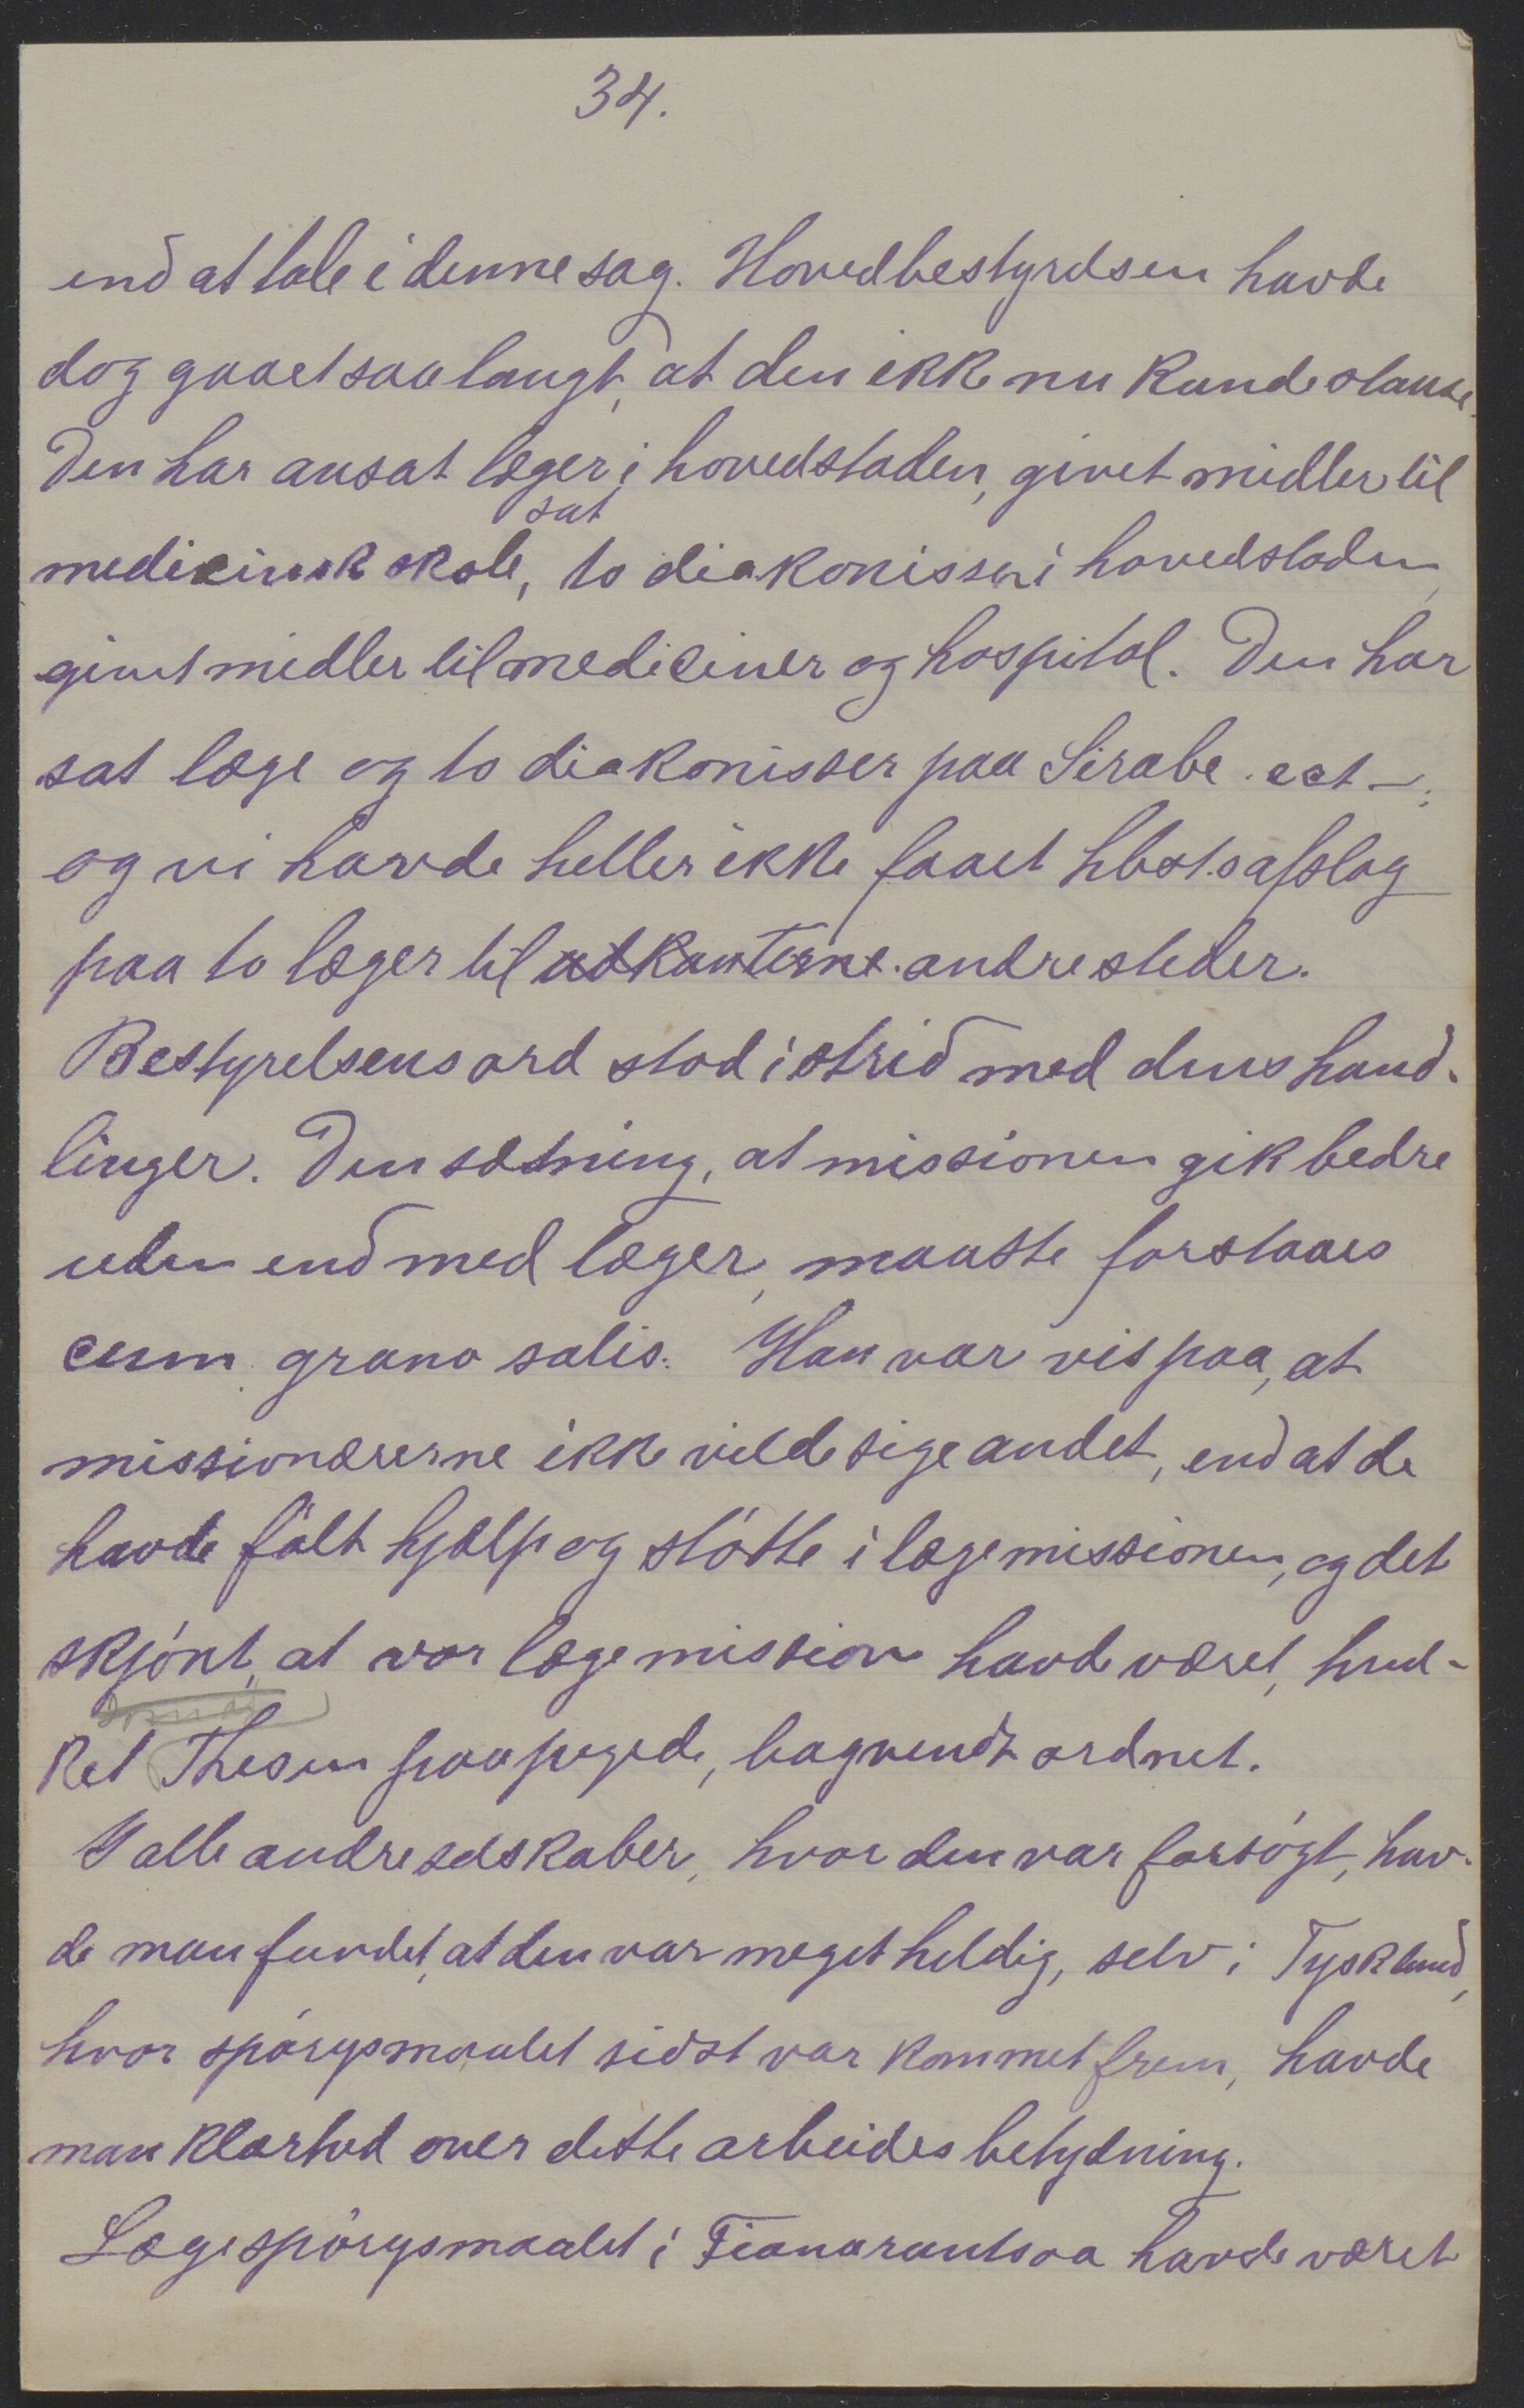 34.
end at tale i denne sag. Hovedbestyrelsen havde
dog gaaet saa langt, at den ikke nu kunde stanse.
Den har ansat læger i hovedstaden, givet midler til
sat
medicinsk skole, to diakonisser i hovedstaden,
givet midler til mediciner og hospital. Den har
sat læge og to diakonisser paa Sirabe. ect –;
og vi havde heller ikke faaet hbst.s afslag
paa to læger til udkanterne. andre steder.
Bestyrelsens ord stod i strid med dens hand-
linger. Den sætning, at missionen gik bedre
uden end med læger, maatte forstaaes
cum grano salis. Han var vis paa, at
missionærerne ikke vilde sige andet, end at de
havde følt hjælp og støtte i lægemissionen, og det
skjønt, at vor lægemission havde været, hvil-
ket Thesen paapegede, bagvendt ordnet.
I alle andre selskaber, hvor den var forsøgt, hav-
de man fundet, at den var meget heldig, selv i Tyskland,
hvor spørgsmaalet sidst var kommet frem, havde
man klarhed over dette arbeides betydning.
Lægespørgsmaalet i Fianarantsoa havde været